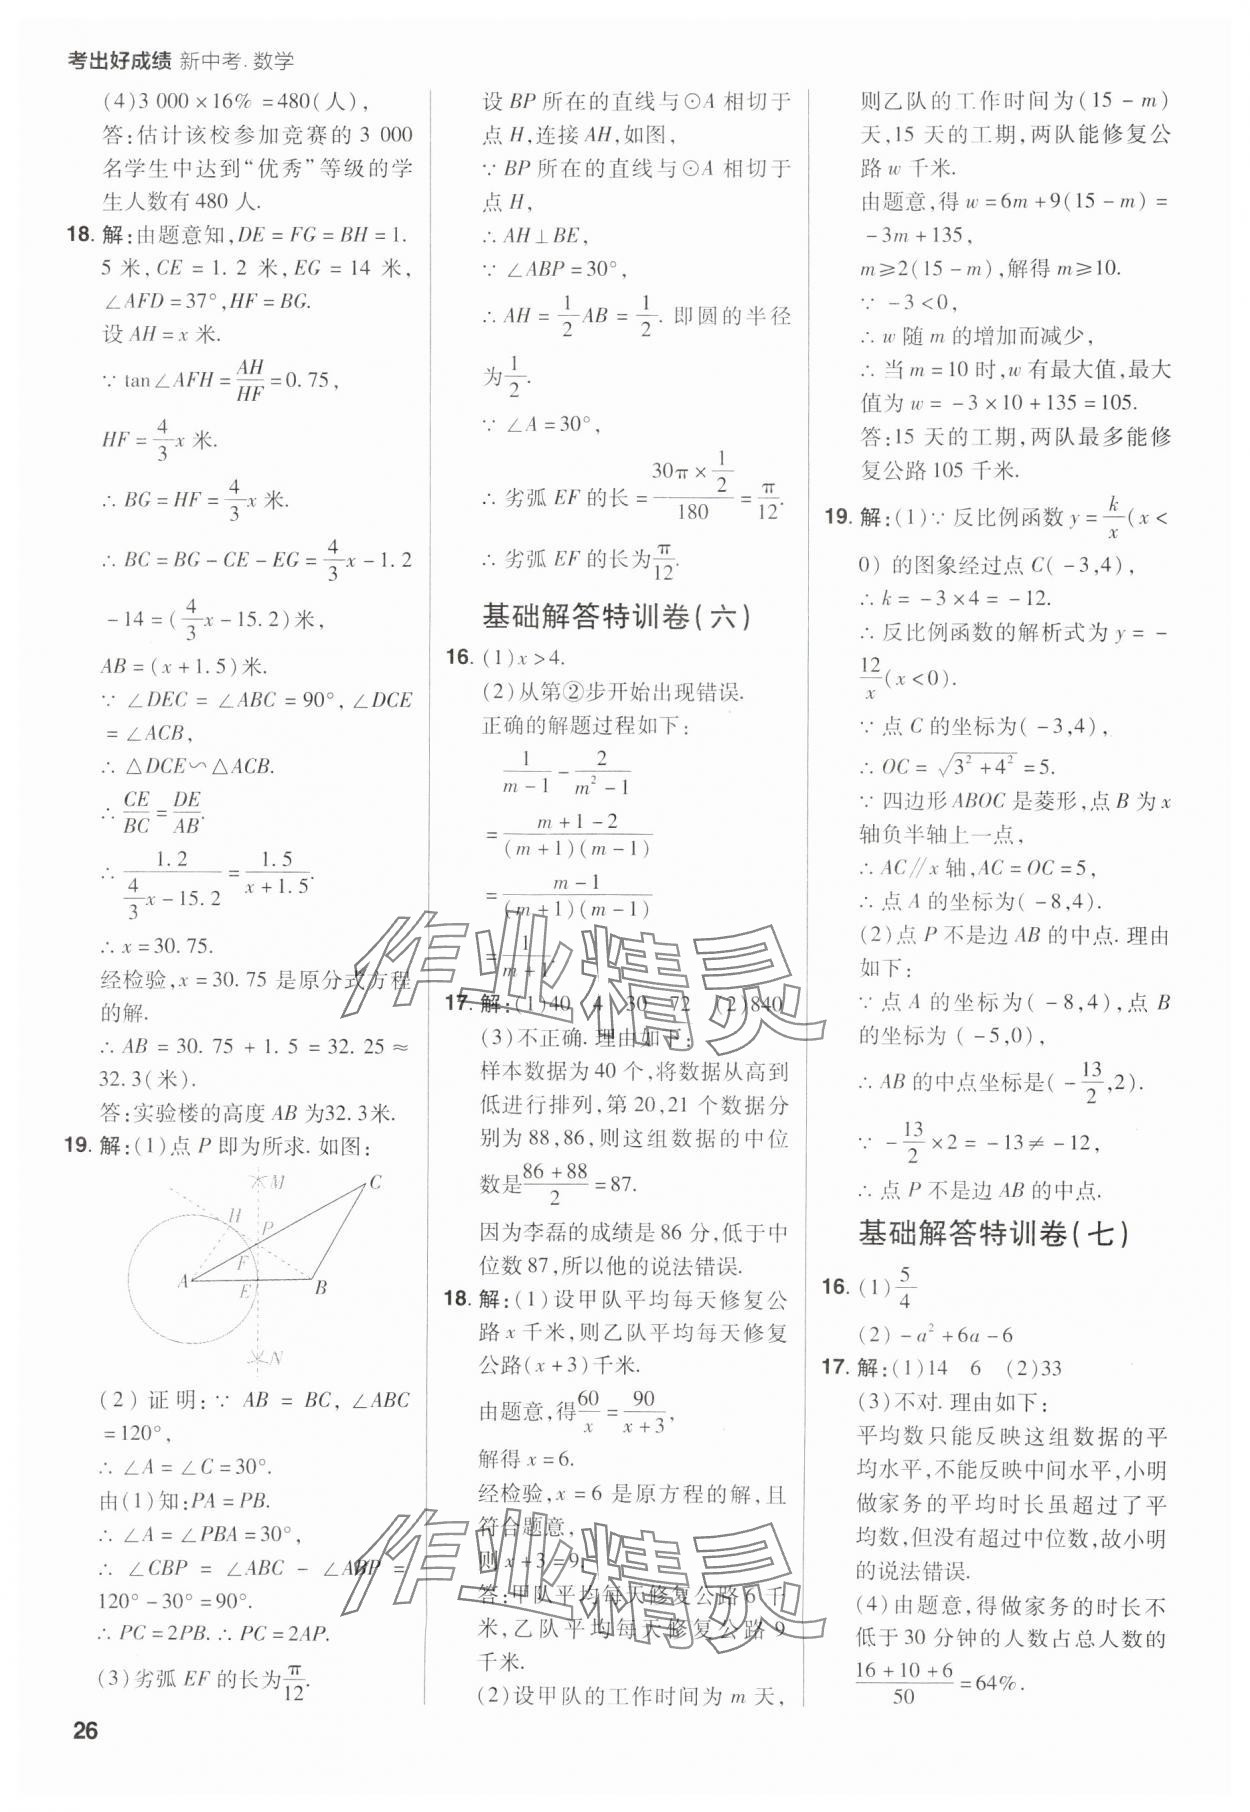 考出好成绩 新中考.数学
(4)3 000×16%=480(人),
答:估计该校参加竞赛的 3 000
名学生中达到“优秀”等级的学
生人数有 480 人.
18. 解:由题意知,DE=FG=BH=1.
5 米,CE=1.2 米,EG=14 米,
∠AFD=37°,HF=BG.
设 AH=x 米.
∵ tan∠AFH=AH/HF=0.75,
HF=4/3x 米.
∴ BG=HF=4/3x 米.
∴ BC=BG-CE-EG=4/3x-1.2
-14=(4/3x-15.2)米,
AB=(x+1.5)米.
∵ ∠DEC=∠ABC=90°,∠DCE
=∠ACB,
∴ △DCE∽△ACB.
∴ CE/BC=DE/AB.
∴ 1.2/(4/3x-15.2)=1.5/(x+1.5).
∴ x=30.75.
经检验,x=30.75 是原分式方程
的解.
∴ AB=30.75+1.5=32.25≈
32.3(米).
答:实验楼的高度 AB 为32.3米.
19. 解:(1)点 P 即为所求.如图:
M
C
H
P
F
A
E
B
N
(2)证明:∵ AB=BC,∠ABC
=120°,
∴ ∠A=∠C=30°.
由(1)知:PA=PB.
∴ ∠A=∠PBA=30°,
∴ ∠CBP=∠ABC-∠ABP=
120°-30°=90°.
∴ PC=2PB.∴ PC=2AP.
(3)劣弧 EF 的长为π/12.
26
设 BP 所在的直线与⊙A 相切于
点 H,连接 AH,如图,
∵ BP 所在的直线与⊙A 相切于
点 H,
∴ AH⊥BE,
∵ ∠ABP=30°,
∴ AH=1/2AB=1/2.即圆的半径
为1/2.
∵ ∠A=30°,
∴ 劣弧 EF 的长=(30π×1/2)/180=π/12.
∴ 劣弧 EF 的长为π/12.
基础解答特训卷(六)
16. (1)x>4.
(2)从第②步开始出现错误.
正确的解题过程如下:
1/(m-1)-2/(m²-1)
=(m+1-2)/((m+1)(m-1))
=(m-1)/((m+1)(m-1))
=1/(m+1).
17. 解:(1)40 4 30 72 (2)840
(3)不正确.理由如下:
样本数据为 40 个,将数据从高到
低进行排列,第 20,21 个数据分
别为 88,86,则这组数据的中位
数是(86+88)/2=87.
因为李磊的成绩是 86 分,低于中
位数 87,所以他的说法错误.
18. 解:(1)设甲队平均每天修复公
路 x 千米,则乙队平均每天修复
公路(x+3)千米.
由题意,得60/x=90/(x+3),
解得 x=6.
经检验,x=6 是原方程的解,且
符合题意,
则 x+3=9.
答:甲队平均每天修复公路 6 千
米,乙队平均每天修复公路 9
千米.
(2)设甲队的工作时间为 m 天,
则乙队的工作时间为(15-m)
天,15 天的工期,两队能修复公
路 w 千米.
由题意,得 w=6m+9(15-m)=
-3m+135,
m≥2(15-m),解得 m≥10.
∵ -3<0,
∴ w 随 m 的增加而减少,
∴ 当 m=10 时,w 有最大值,最大
值为 w=-3×10+135=105.
答:15 天的工期,两队最多能修
复公路 105 千米.
19. 解:(1)∵ 反比例函数 y=k/x(x<
0)的图象经过点 C(-3,4),
∴ k=-3×4=-12.
∴ 反比例函数的解析式为 y=-
12/x(x<0).
∵ 点 C 的坐标为(-3,4),
∴ OC=√(3²+4²)=5.
∵ 四边形 ABOC 是菱形,点 B 为 x
轴负半轴上一点,
∴ AC∥x 轴,AC=OC=5,
∴ 点 A 的坐标为(-8,4).
(2)点 P 不是边 AB 的中点.理由
如下:
∵ 点 A 的坐标为(-8,4),点 B
的坐标为(-5,0),
∴ AB 的中点坐标是(-13/2,2).
∵ -13/2×2=-13≠-12,
∴ 点 P 不是边 AB 的中点.
基础解答特训卷(七)
16. (1)5/4
(2)-a²+6a-6
17. 解:(1)14 6 (2)33
(3)不对.理由如下:
平均数只能反映这组数据的平
均水平,不能反映中间水平,小明
做家务的平均时长虽超过了平
均数,但没有超过中位数,故小明
的说法错误.
(4)由题意,得做家务的时长不
低于 30 分钟的人数占总人数的
(16+10+6)/50=64%.
作业精灵
作业精灵